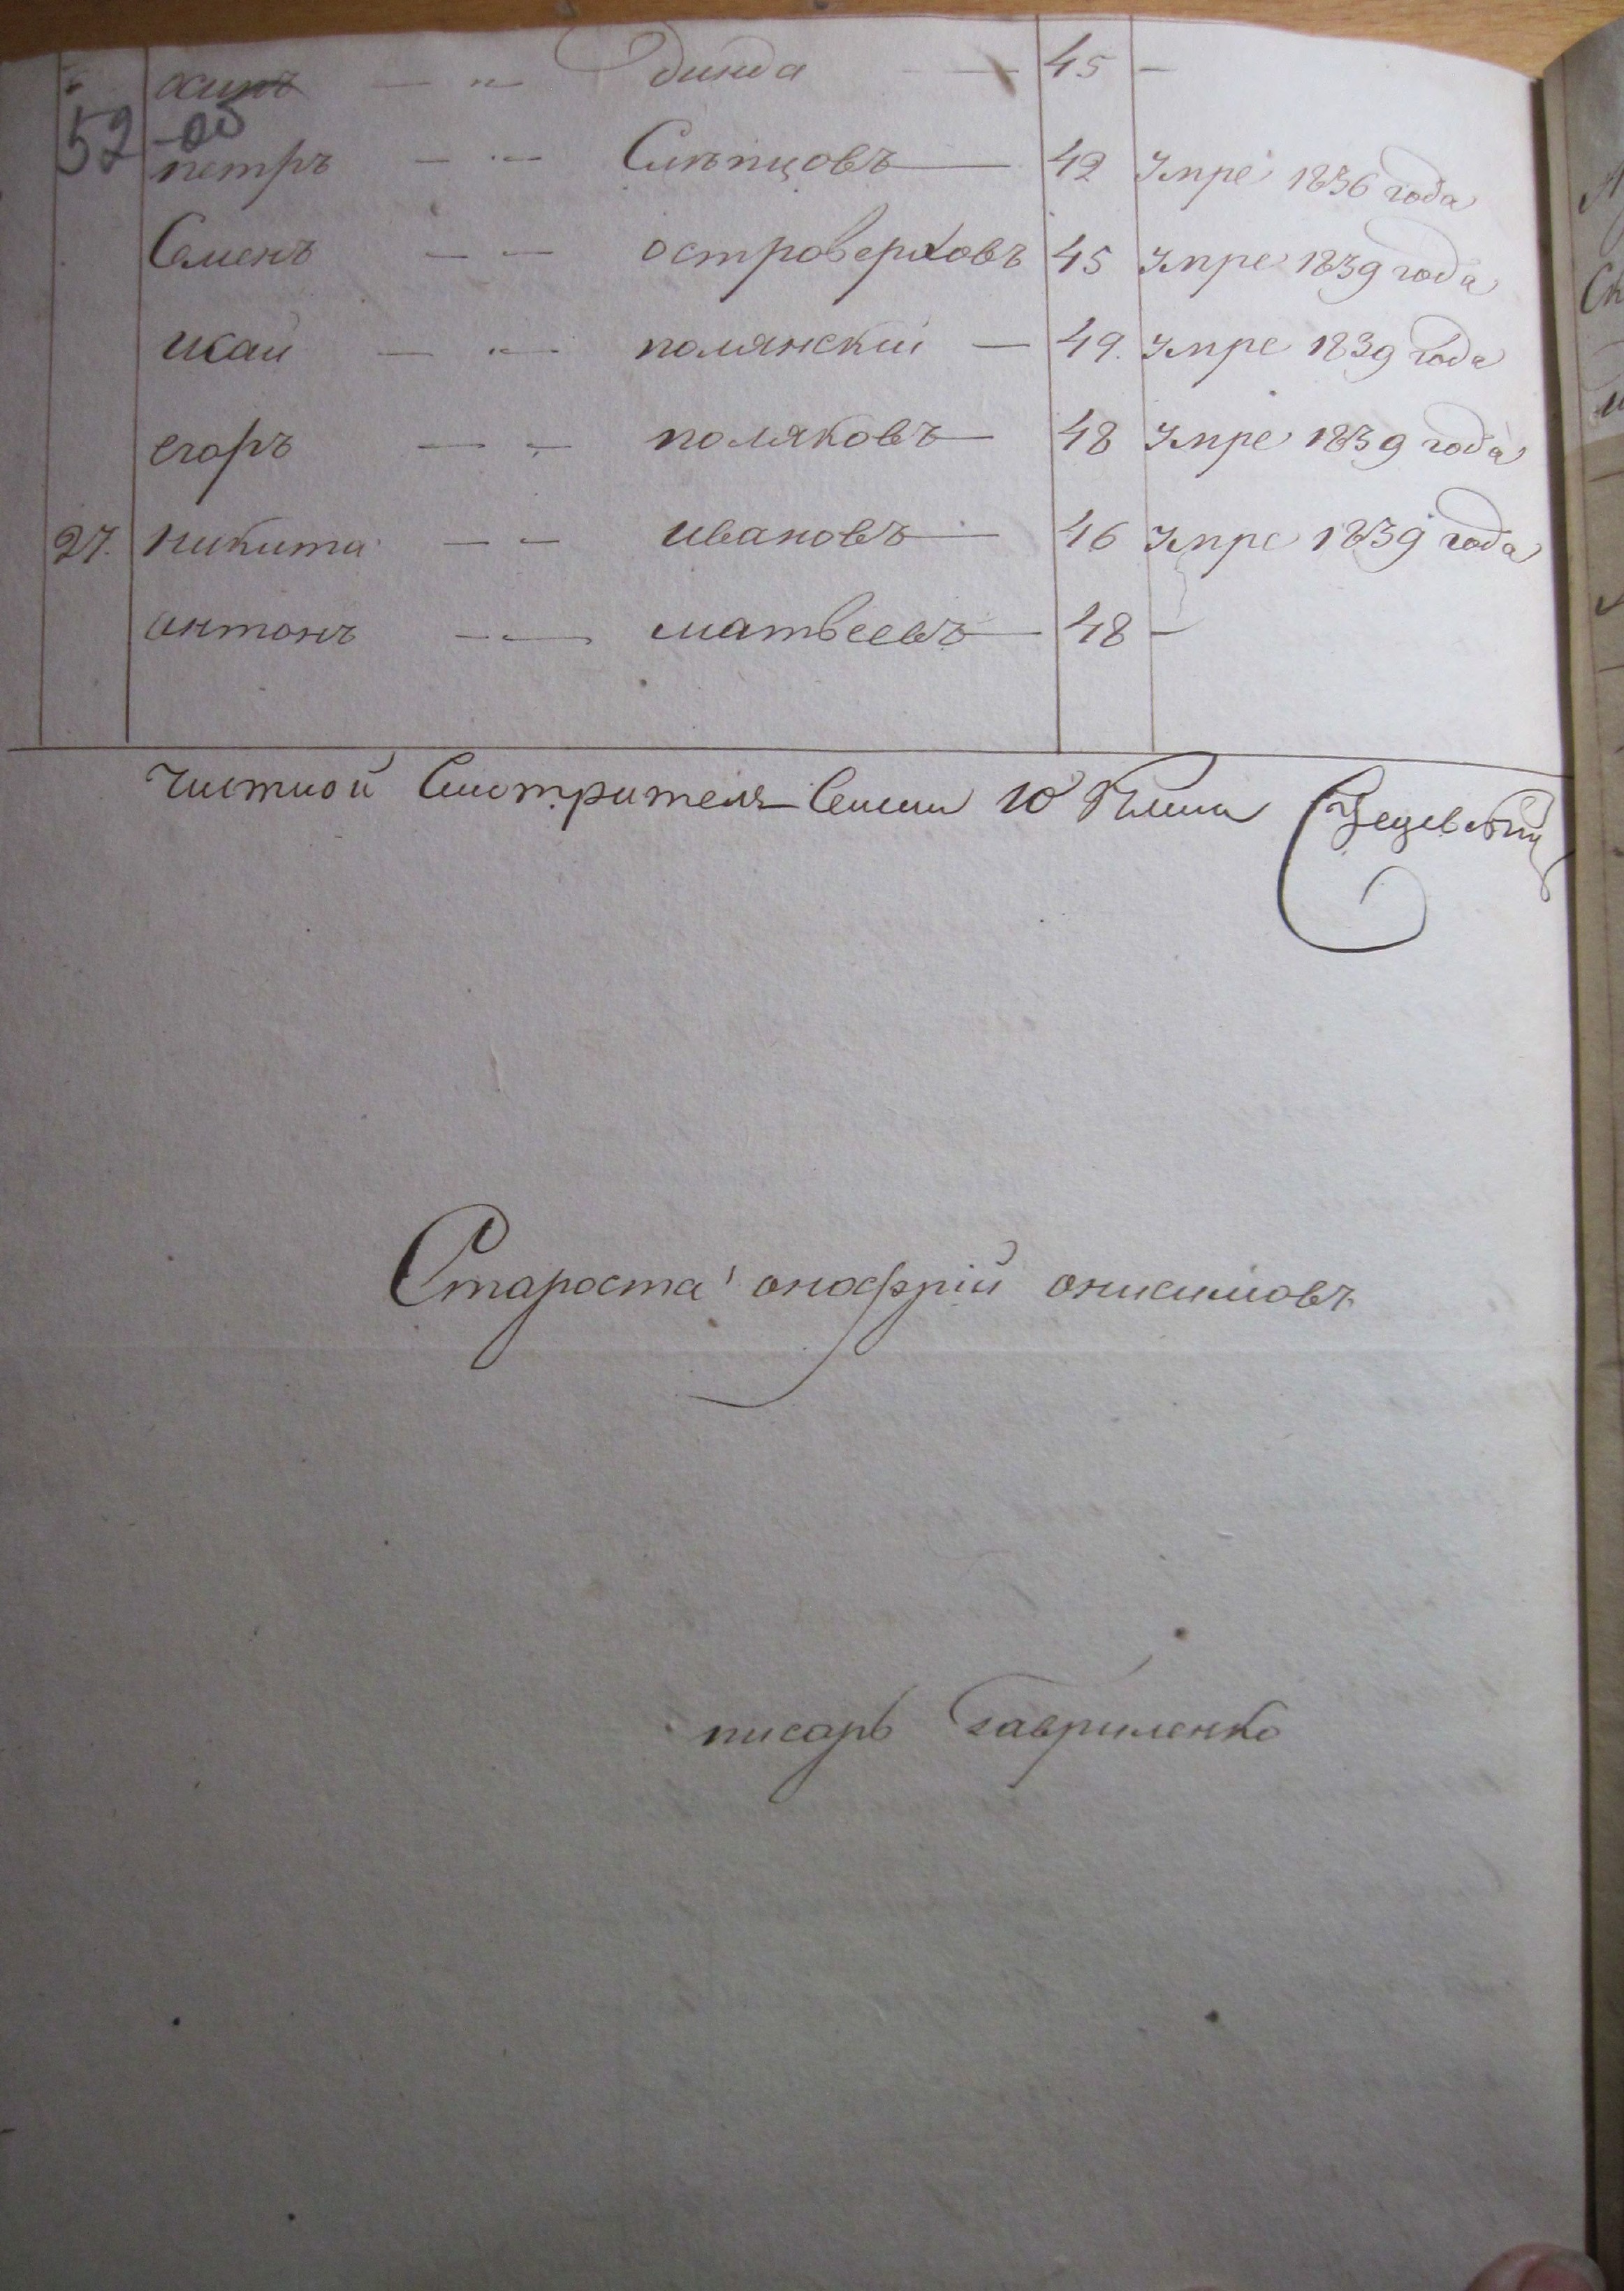 осипъ — „ — динда — 45 —
52-об
петръ — „ — Слепцовъ — 42 Умре 1836 года
Семенъ — — островерховъ 45 Умре 1839 года
исаи — „ — полянскии — 49. Умре 1839 года
егоръ — — поляковъ — 48 Умре 1839 года
27. никита — — ивановъ — 46 Умре 1839 года
антонъ — — матвеевъ — 48 —
Смотритель
Староста онофрій онисимовъ
писарь Гавриленко